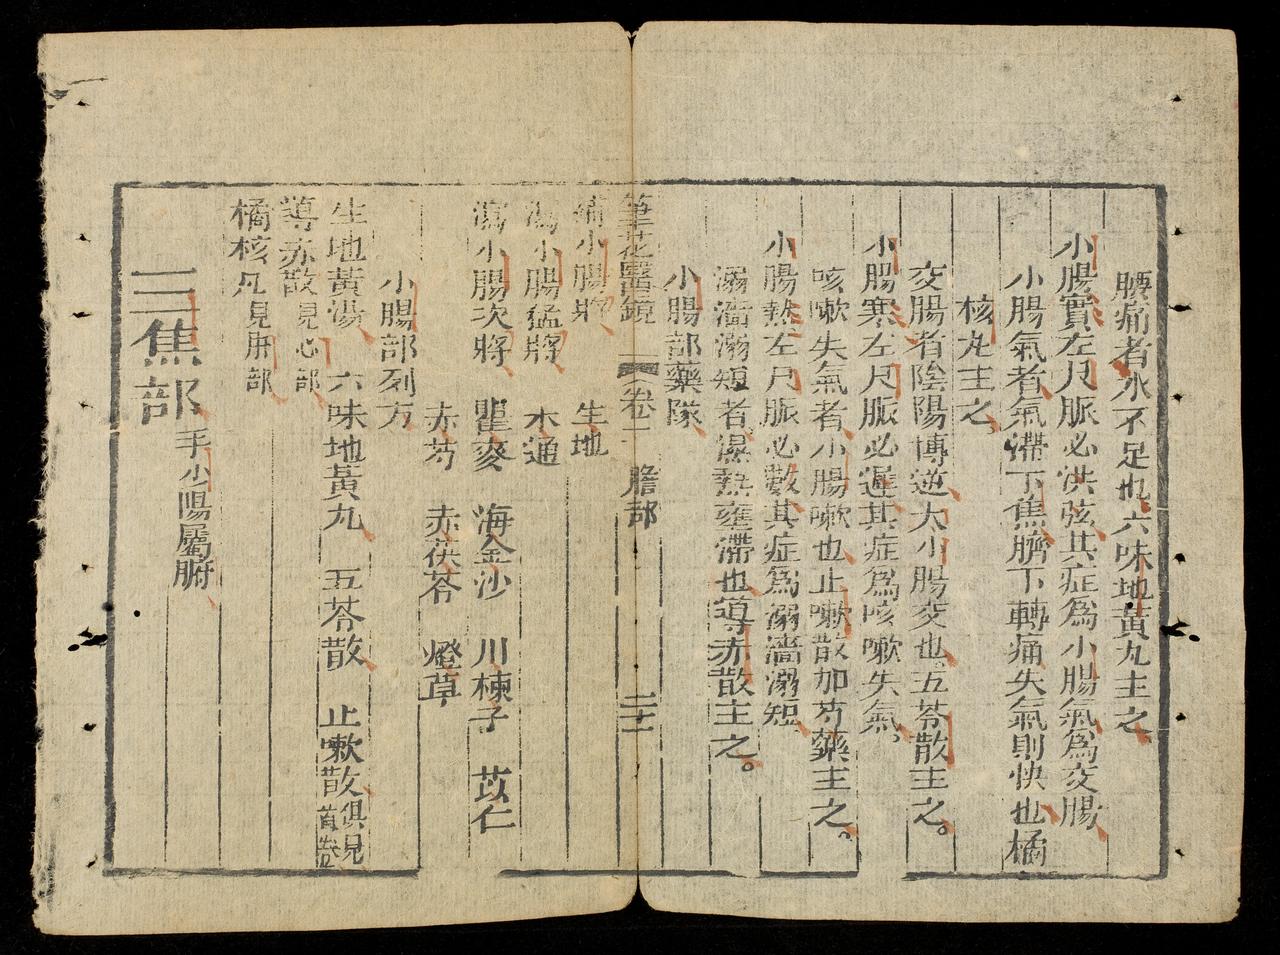 腰痛者水不足也六味地黃丸主之
小腸實左尺脈必洪弦其症爲小腸氣爲交腸
小腸氣者氣滯下焦臍下轉痛失氣則快也橘
核丸主之。
交腸者陰陽傳逆大小腸交也。五苓散主之。
小腸寒左尺脈必遲其症爲咳嗽失氣。
咳嗽失氣者小腸嗽也止嗽散加芍藥主之。
小腸熱左尺脈必數其症爲溺濇溺短
溺濇溺短者濕熱壅滯也導赤散主之。
小腸部藥隊
筆花醫鏡 卷二 膽部 二十二
補小腸將 生地
瀉小腸猛將 木通
瀉小腸次將 瞿麥 海金沙 川楝子 苡仁
赤芍 赤茯苓 燈草
小腸部列方
生地黃湯 六味地黃丸 五苓散 止嗽散俱見首卷
導赤散見心部
橘核丸見肝部
三焦部手少陽屬腑